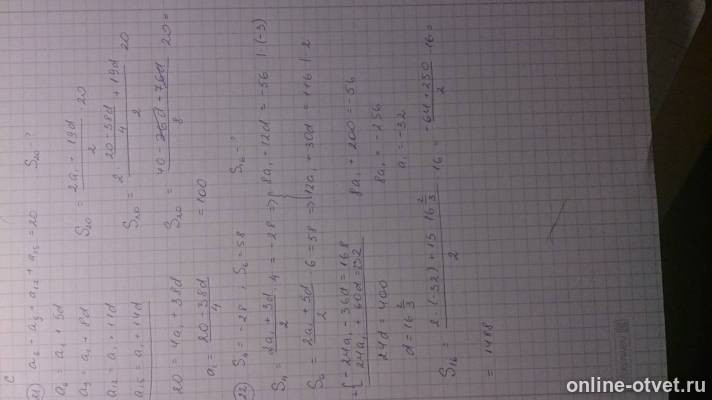 C
21) a₆ + a₉ + a₁₂ + a₁₅ = 20 S₂₀ - ?
a₆ = a₁ + 5d
a₉ = a₁ + 8d
a₁₂ = a₁ + 11d
a₁₅ = a₁ + 14d
20 = 4a₁ + 38d
a₁ = (20 - 38d)/4
S₂₀ = (2a₁ + 19d)/2 · 20
S₂₀ = (2 · (20 - 38d)/4 + 19d)/2 · 20
S₂₀ = (40 - 76d + 76d)/8 · 20 =
= 100
22) S₄ = -28 ; S₆ = 58 S₁₆ - ?
S₄ = (2a₁ + 3d)/2 · 4 = -28 => { 8a₁ + 12d = -56 | (-3)
S₆ = (2a₁ + 5d)/2 · 6 = 58 => { 12a₁ + 30d = 116 | 2
+ { -24a₁ - 36d = 168
24a₁ + 60d = 232
24d = 400
d = 16 2/3
8a₁ + 200 = -56
8a₁ = -256
a₁ = -32
S₁₆ = (2 · (-32) + 15 · 16 2/3)/2 · 16 = (-64 + 250)/2 · 16 =
= 1488
online-otvet.ru